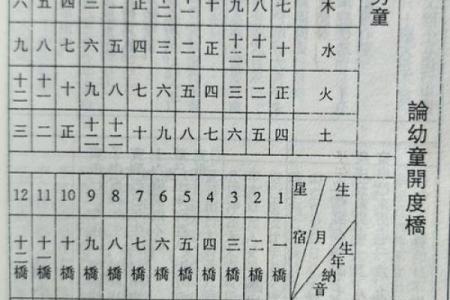 論幼童開度橋
童
木 水 火 土
七 十 正 四
八 十一 二 五
九 十二 三 六
十 正 四 七
十一 二 五 八
十二 三 六 九
正 四 七 十
二 五 八 十一
三 六 九 十二
四 七 十 正
五 八 十一 二
六 九 十二 三
生年納音
生月
星宿
1 一橋
2 二橋
3 三橋
4 四橋
5 五橋
6 六橋
7 七橋
8 八橋
9 九橋
10 十橋
11 十一橋
12 十二橋